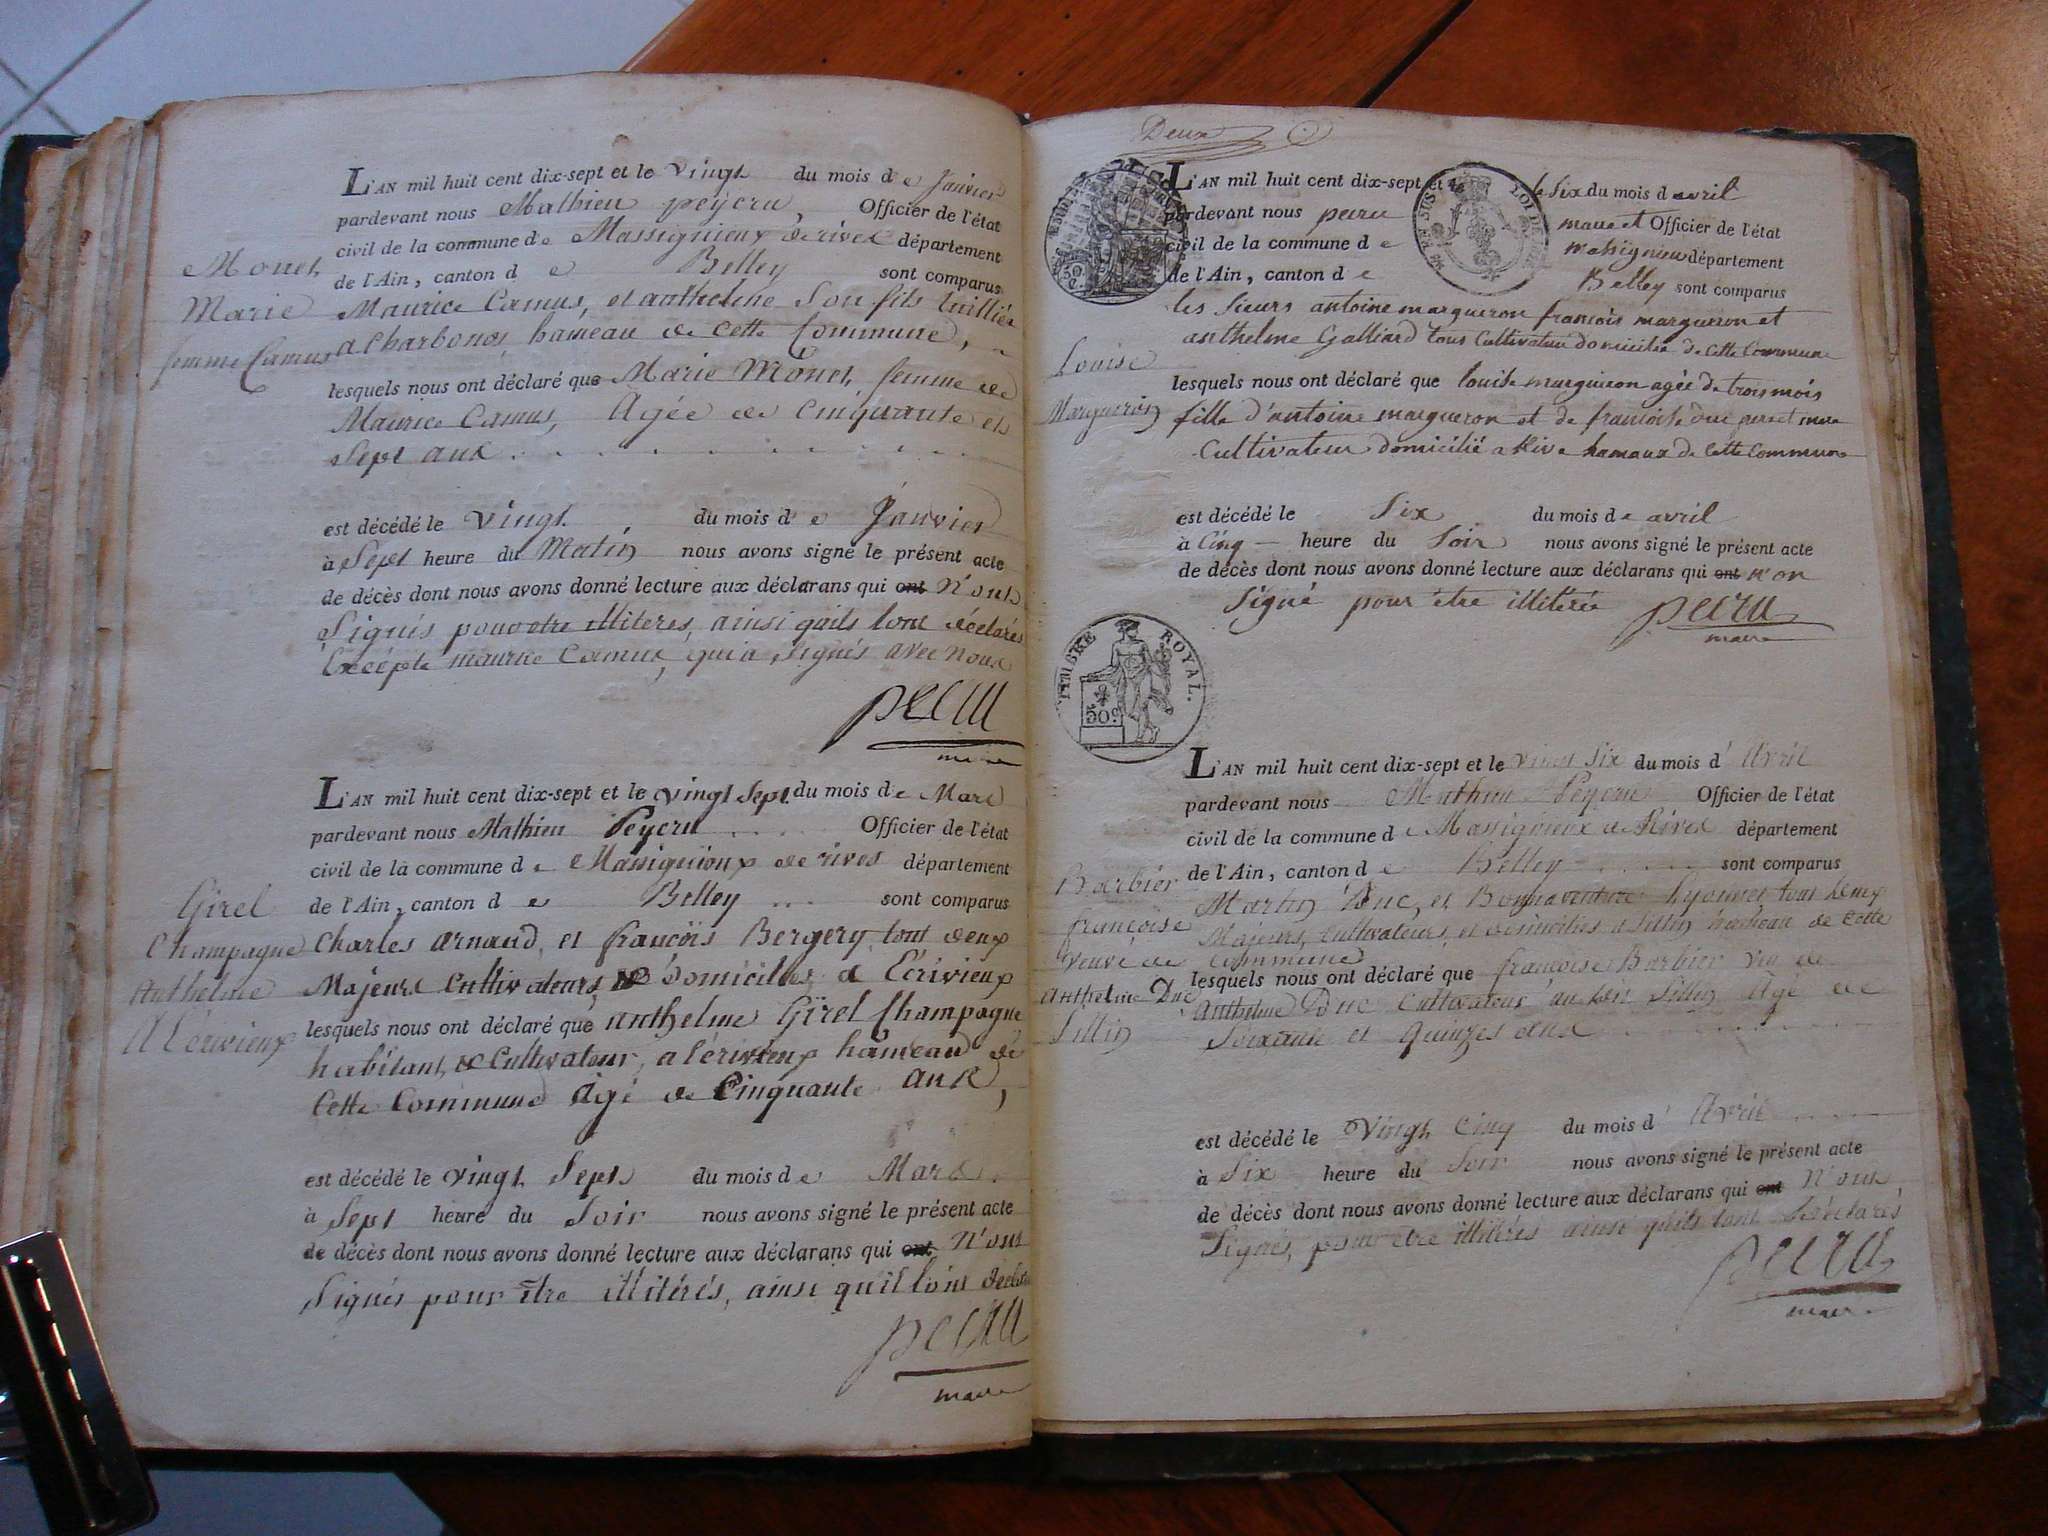 Monet
Marie
femme Camus
L'AN mil huit cent dix-sept et le vingt du mois de Janvier
pardevant nous Mathieu peÿcru, Officier de l'état
civil de la commune de Massignieux de rives département
de l'Ain, canton de Belley sont comparus
Maurice Camus, et anthelme Son fils tuillier
a Charbonod hameau de cette Commune,
lesquels nous ont déclaré que Marie Monet, femme de
Maurice Camus, Agée de Cinquante et
Sept ans
est décédé le vingt du mois de Janvier
à Sept heure du Matin nous avons signé le présent acte
de décès dont nous avons donné lecture aux déclarans qui ont N'ont
Signés pour etre illiteres, ainsi quils lont déclarés
Excépte maurice Camus, qui a Signés avec Nous
pecru
maire
Girel
Champagne
Anthelme
A Lérivieux
L'AN mil huit cent dix-sept et le vingt Sept du mois de Mars
pardevant nous Mathieu Peycru Officier de l'état
civil de la commune de Massignieux de rives département
de l'Ain, canton de Belley sont comparus
Charles arnaud, et françois Bergery tout deux
Majeurs Cultivateurs & Domiciliés a Ecrivieux
lesquels nous ont déclaré que anthelme Girel Champagne
habitant, & Cultivateur, a lérivieux hameau de
Cette Commune Agé de Cinquante ans,
est décédé le vingt Sept du mois de Mars
à Sept heure du Soir nous avons signé le présent acte
de décès dont nous avons donné lecture aux déclarans qui ont N'ont
Signés pour être illitérés, ainsi quil lont declarés
pecru
maire
Deux
TIMBRE ROYAL
50 c.
LOI DE
Louise
Margueron
L'AN mil huit cent dix-sept et le le Six du mois d avril
pardevant nous pecru maire et Officier de l'état
civil de la commune de massignieu département
de l'Ain, canton de Belley sont comparus
les Sieurs antoine margueron françois margueron et
anthelme Galliard tous Cultivateur domicilié de Cette Commune
lesquels nous ont déclaré que louise margueron agée de trois mois
fille d'antoine margueron et de francoise duc pere et mere
Cultivateur domicilié a Rive hamaux de Cette Commune
est décédé le Six du mois de avril
à Cinq heure du Soir nous avons signé le présent acte
de décès dont nous avons donné lecture aux déclarans qui ont n'on
Signé pour être illiterée pecru
maire
TIMBRE ROYAL.
50 c.
Barbier
françoise
veuve de
Anthelme Duc
Sillin
L'AN mil huit cent dix-sept et le vingt Six du mois d' Avril
pardevant nous Mathieu Peycru Officier de l'état
civil de la commune de Massignieux de Rives département
de l'Ain, canton de Belley sont comparus
Martin Duc, et Bonnaventure Lyonnet tout deux
Majeurs, Cultivateurs, et domiciliés a Sillin hameau de cette
Commune
lesquels nous ont déclaré que françoise Barbier veu de
Anthelme Duc Cultivateur au dit Sillin Agé de
Soixante et quinzes ans
est décédé le Vingt Cinq du mois d' Avril
à Six heure du Soir nous avons signé le présent acte
de décès dont nous avons donné lecture aux déclarans qui ont N'ont
Signés, pour être illitérés ainsi quils lont Déclarés
pecru
maire